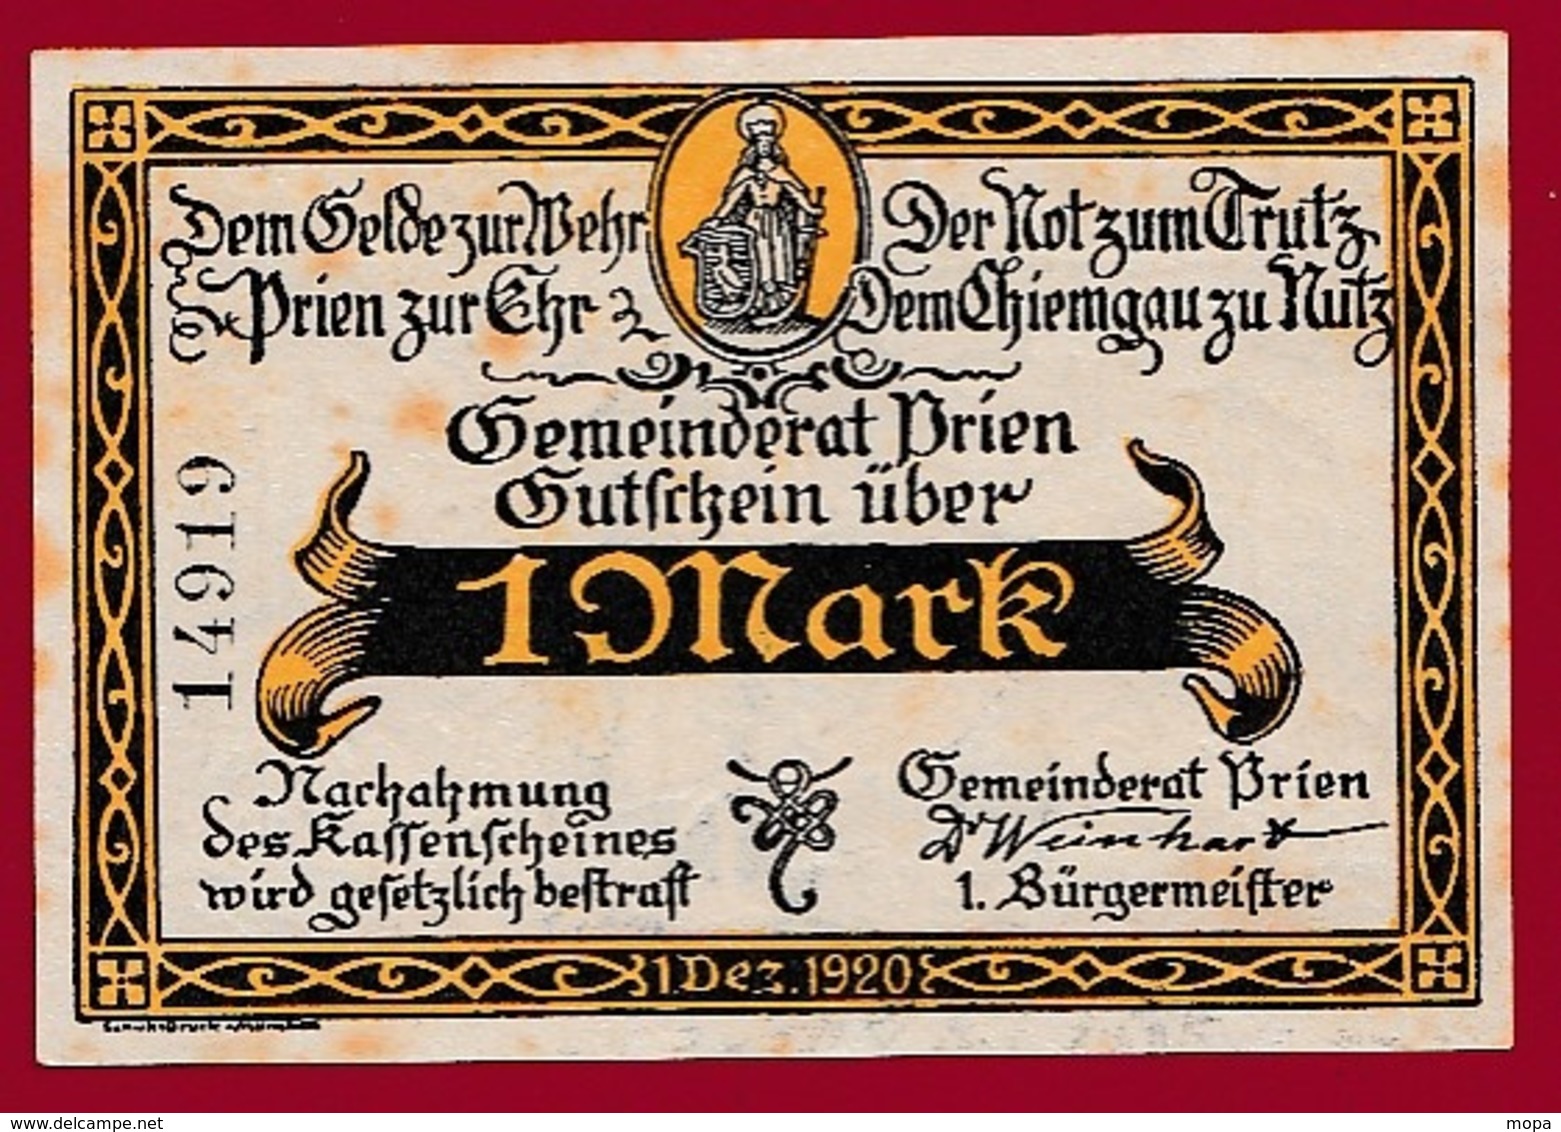 Dem Gelde zur Wehr
Prien zur Ehr
Der Not zum Trutz
Dem Chiemgau zu Nutz
Gemeinderat Prien
Gutschein über
1 Mark
14919
Nachahmung
des Kassenscheines
wird gesetzlich bestraft
Gemeinderat Prien
Dr Weinhart
1. Bürgermeister
1. Dez. 1920
www.delcampe.net
mopa